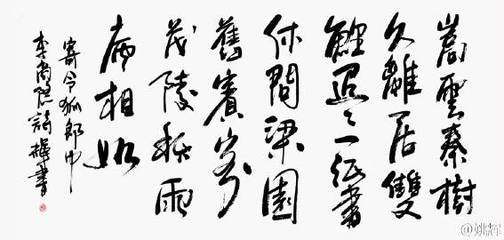 嵩雲秦樹
久離居雙
鯉迢々一紙書
休問梁園
舊賓客
茂陵秋雨
病相如
寄令狐郎中
李商隐詩 輝書
@姚辉